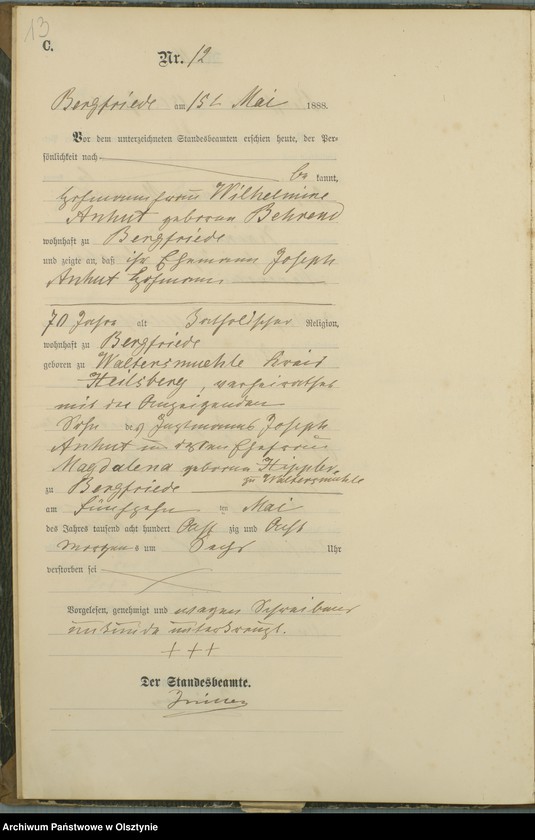 13
C.
Nr. 12
Bergfriede am 15t Mai 1888.
Vor dem unterzeichneten Standesbeamten erschien heute, der Per-
sönlichkeit nach be kannt,
Hofmannsfrau Wilhelmine
Anhut geboren Behrend
wohnhaft zu Bergfriede
und zeigte an, daß ihr Ehemann Joseph
Anhut Hofmann,
70 Jahre alt katholischer Religion,
wohnhaft zu Bergfriede
geboren zu Waltersmuehle Kreis
Heilsberg, verheirathet
mit der Anzeigenden
Sohn des Instmanns Joseph
Anhut und dessen Ehefrau
Magdalena geboren Hippler
zu Waltersmuehle
zu Bergfriede
am fünfzehn ten Mai
des Jahres tausend acht hundert Acht zig und Acht
Morgens um Sechs Uhr
verstorben sei
Vorgelesen, genehmigt und wegen Schreibens
unkunde unterkreuzt.
+++
Der Standesbeamte.
Archiwum Państwowe w Olsztynie